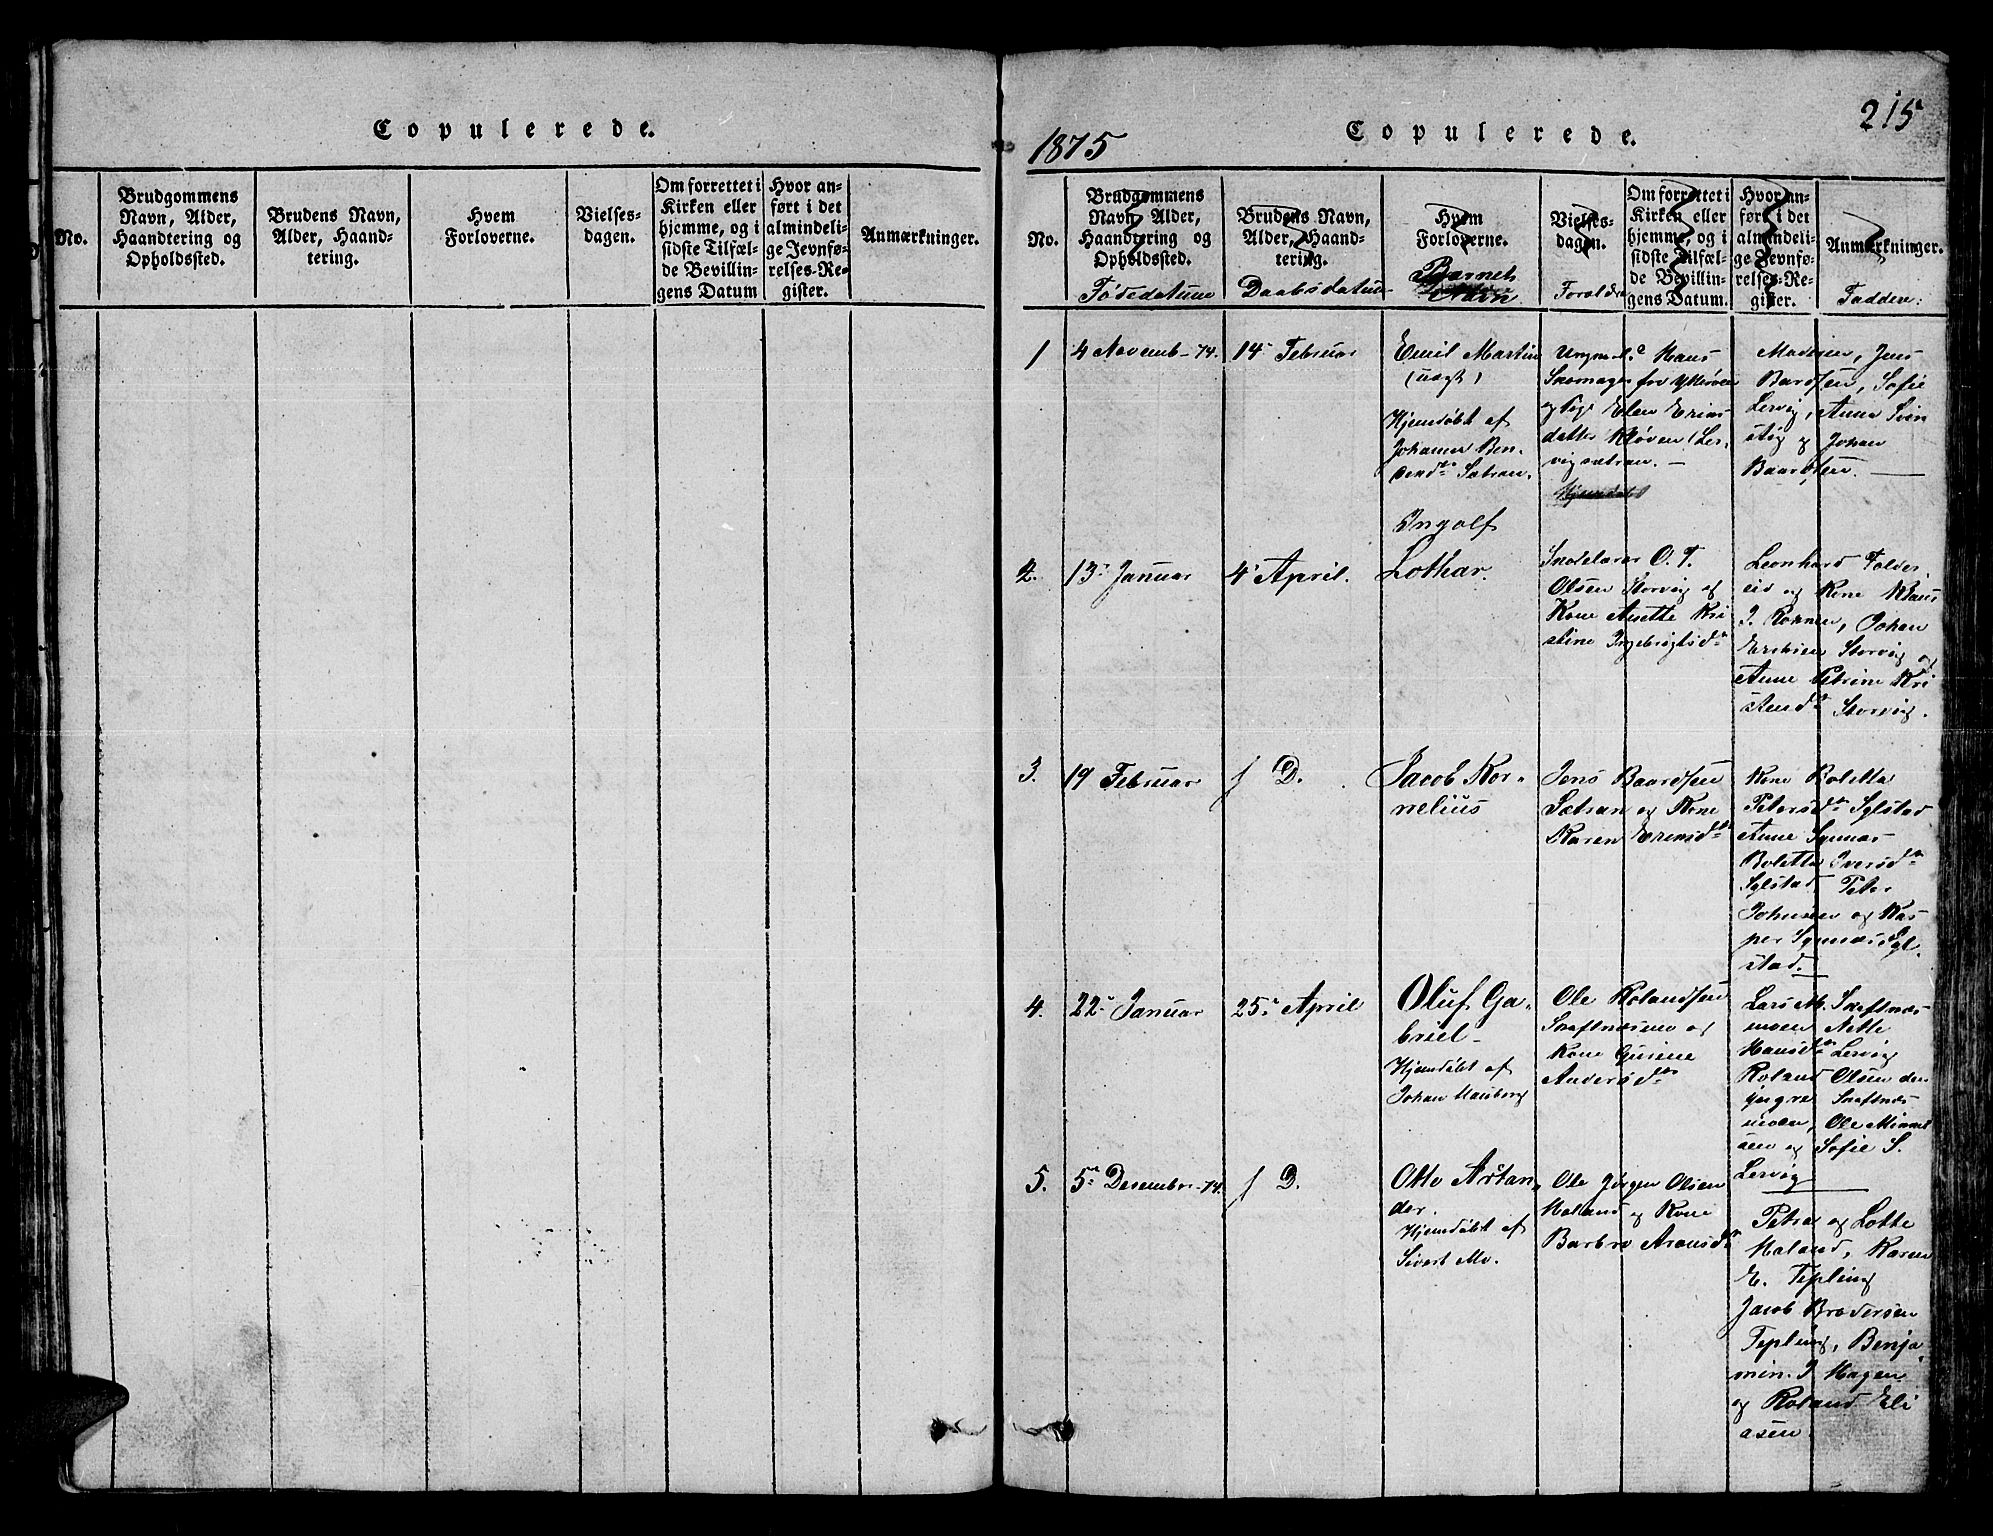 Copulerede.
No.
Brudgommens
Navn, Alder,
Haandtering og
Opholdssted.
Brudens Navn,
Alder, Haand-
tering.
Hvem
Forloverne.
Vielses-
dagen.
Om forrettet i
Kirken eller
hjemme, og i
sidste Tilfæl-
de Bevillin-
gens Datum
Hvor an-
ført i det
almindeli-
ge Jevnfø-
relses-Re-
gister.
Anmærkninger.
215
1875
Copulerede.
No.
Brudgommens
Navn, Alder,
Haandtering og
Opholdssted.
Fødedatum
Brudens Navn,
Alder, Haand-
tering.
Daabsdatum
Hvem
Forloverne.
Barnets
Navn
Vielses-
dagen.
Foreldre
Om forrettet i
Kirken eller
hjemme, og i
sidste Tilfæl-
de Bevillin-
gens Datum.
Hvor an-
ført i det
almindeli-
ge Jevnfø-
relses-Re-
gister.
Anmærkninger.
Faddere:
1
4 Novemb-74.
14 Februar
Emil Martin
(uægt)
Hjemdøbt af
Johanna Ben-
Sætran.
Hans
Skomager
og Pige Elen
datter Kløven (Ler-
vigsætran. -
Hjemdøbt
Jens
Bardsen, Sofie
Lervig, Anna Svin
stig og Johan
Baardsen.
2.
13 Januar
4 April.
Ingolf
Lothar.
O. T.
Olsen Storvig og
Kone Anette Kri
stine Ingebrigtsdr
Leonhard Folder
eid og Kone Klaus
J. Johan
Storvig og
Anne Petrine Kri
Storvig.
3.
19 Februar
f D.
Jacob Kor-
nelius
Jens Baardsen
Sætran og Kone
Karen
Kone Boletta
Petersdr Sylstad
Anne Gunnar
Boletta Iversdr
Sylstad Peter
Johnsen og Kas-
per Syl
stad.
4.
22 Januar
25 April
Oluf Ga-
briel
Hjemdøbt af
Johan
Ole Rolandsen
Skaftnæsmo og
Kone
Andersdtr
Lars M. Skaftnæs-
moen Nette
Hansdtr Lervig
Roland Olsen den
yngre Skaftnæs-
moen, Ole Mikkel
sen og Sofie S.
Lervig
5.
5 Desember-74.
f D.
Otto Artan-
der.
Hjemdøbt af
Sivert Mo.
Ole Jørgen Olsen
Moland og Kone
Barbro Aronsdr
Petra og Lotte
Moland, Karen
E. Tepling
Jacob Brodersen
Tepling, Benja-
min. J Hagen
og Roland Eli
asen.